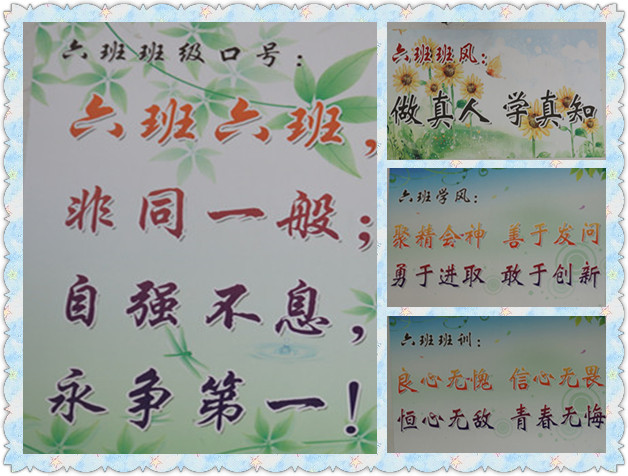 六班班级口号：
六班六班，
非同一般；
自强不息，
永争第一！
六班班风：
做真人 学真知
六班学风：
聚精会神 善于发问
勇于进取 敢于创新
六班班训：
良心无愧 信心无畏
恒心无敌 青春无悔